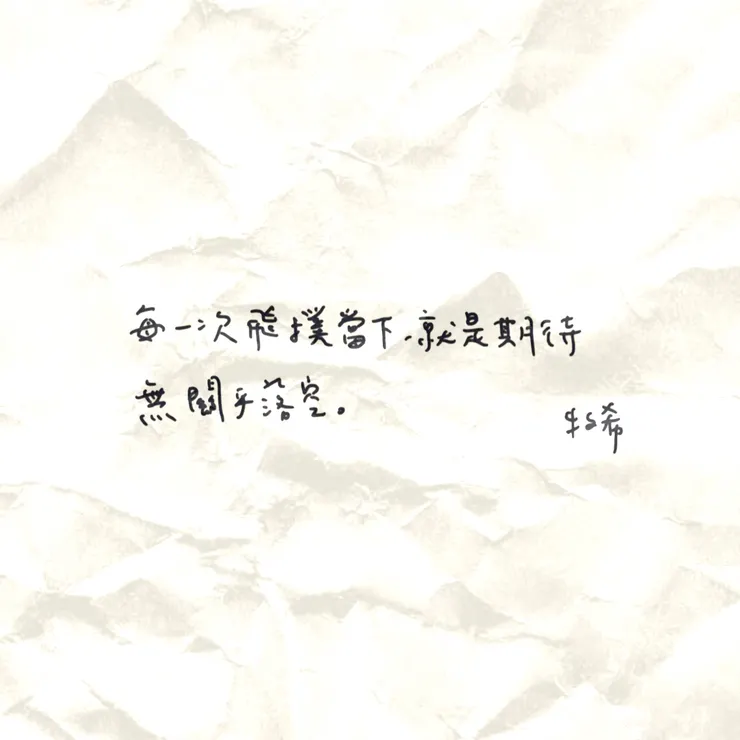 每一次飛撲當下,就是期待
無關乎落空。
牧希